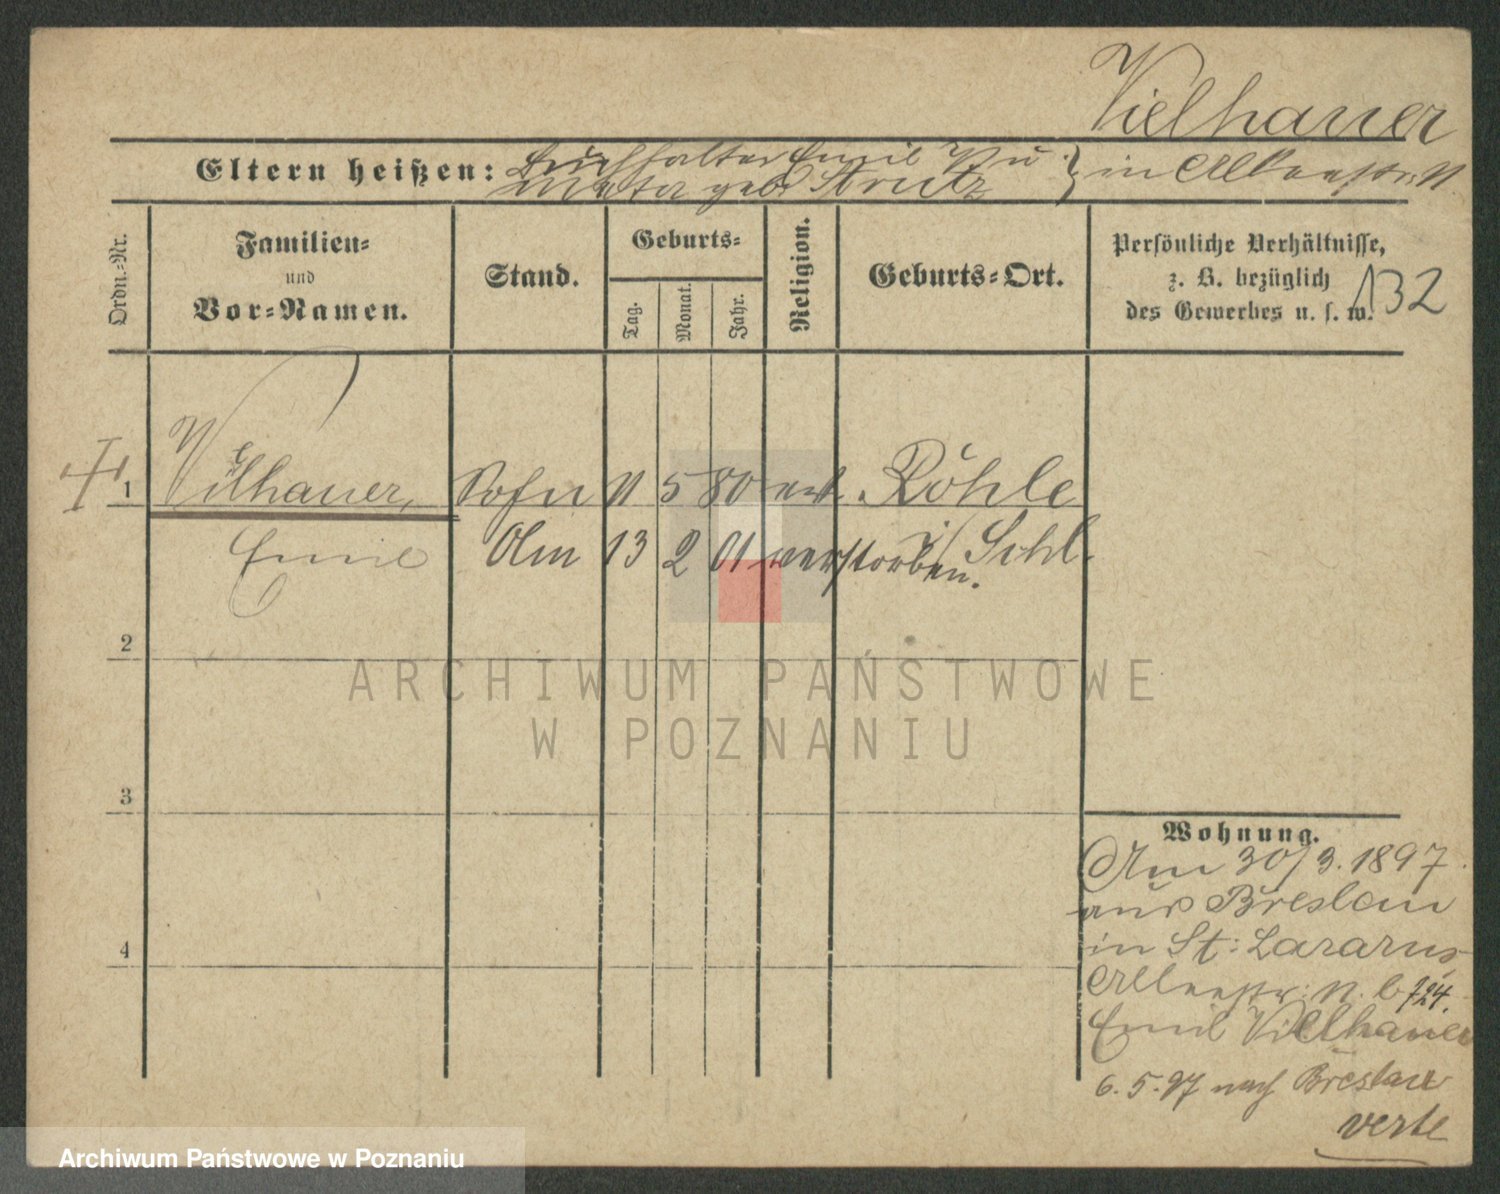 Vielhauer
Eltern heißen: Buchhalter Emil V. u. } in Allerstr. 11
geb. Strutz
Ordn.-Nr.
Familien-
und
Vor-Namen.
Stand.
Geburts-
Tag.
Monat.
Jahr.
Religion.
Geburts-Ort.
Persönliche Verhältnisse,
z. B. bezüglich
des Gewerbes u. s. w.
132
1 Vielhauer, Sohn 11 5 80 Röhle
Emil 13 2 01 verstorben. Schl.
2
3
4
Wohnung.
Am 30/3. 1897
aus Breslau
in St: Lazarus
724.
Emil Vielhauer
6. 5. 97 nach Breslau
verte
ARCHIWUM PAŃSTWOWE
W POZNANIU
Archiwum Państwowe w Poznaniu